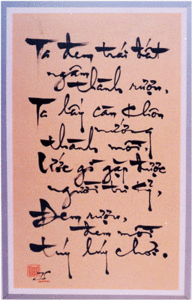 Ta đem trái đất
ngâm thành rượu,
Ta lấy càn khôn
nướng
thành mồi.
Ước gì gặp được
người tri kỷ,
Đem rượu,
đem mồi
túy lúy chơi.